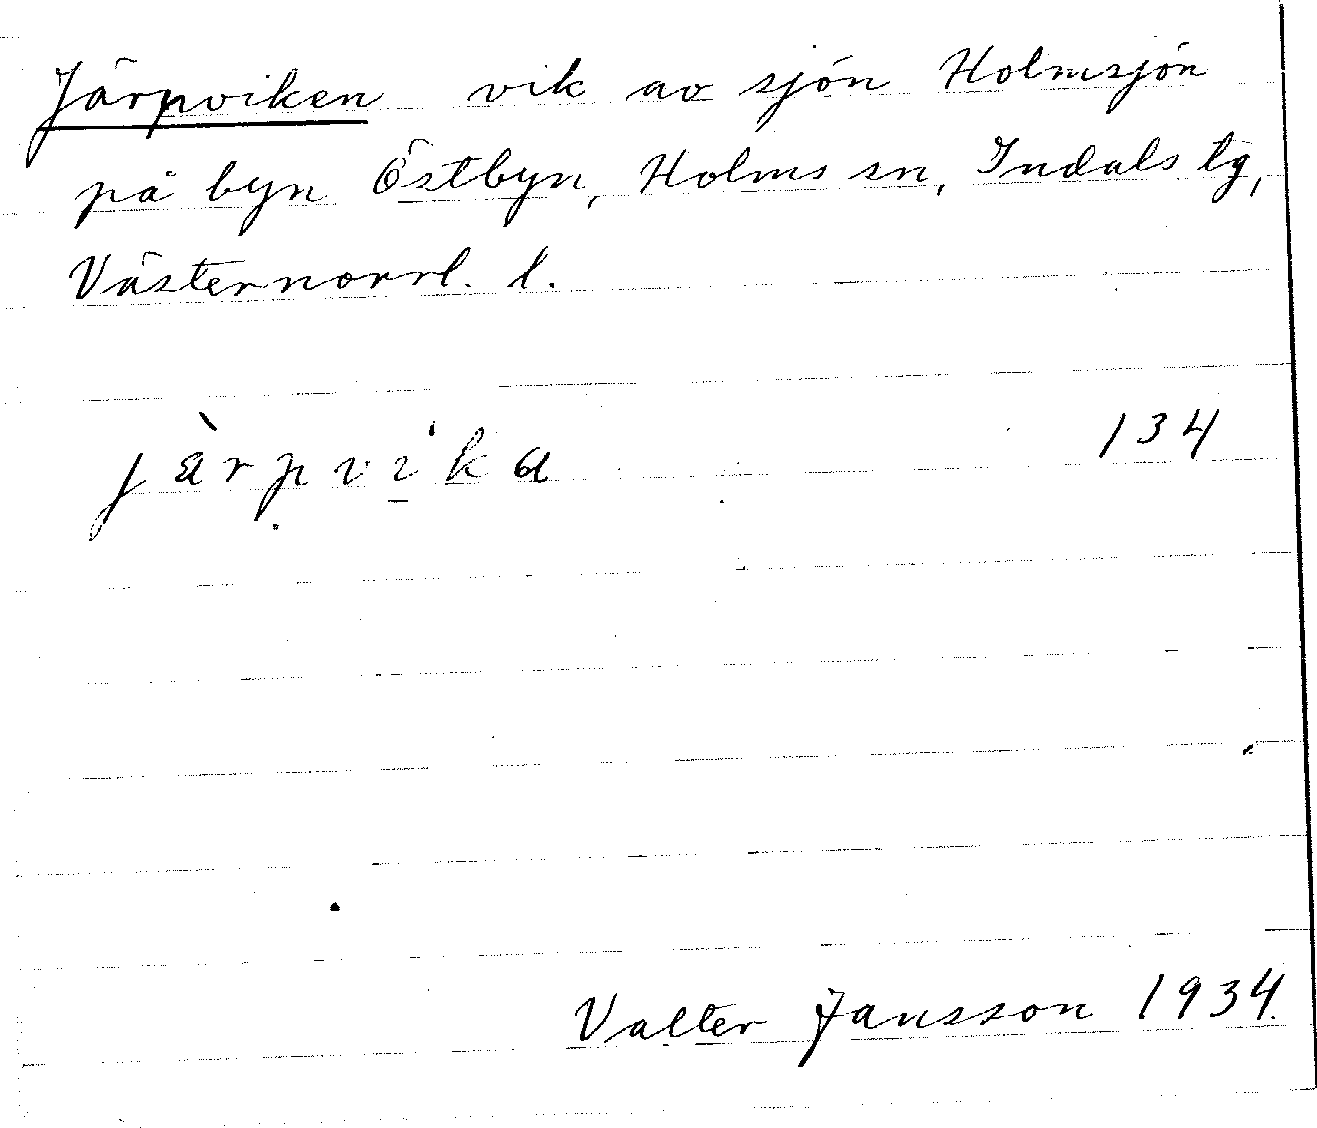 Järpviken vik av sjön Holmsjön
på byn Östbyn, Holms sn, Indals tg,
Västernorrl. l.
jàrpvika 134
Valter Jansson 1934.